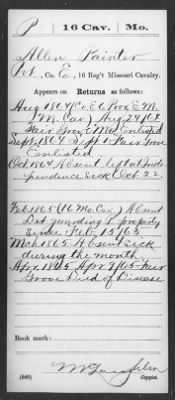 P | 16 Cav. | Mo.
Allen Painter
Pvt., Co. E, 16 Reg't Missouri Cavalry.
Appears on Returns as follows:
Aug 1864 (Co. E 6 Prov. E. M.
M.) Aug 24/64
Fair Grove Mo. Enlisted
Sept. 1864 Sept 1 Fair Grove
Enlisted
Oct 1864 Absent left at Inde
pendence sick Oct 22
Feb. 1865 (16 Mo. Cav.) Absent
Det. guarding property
since Feb. 15/65
Mch 1865 Absent sick
during the month
Apr. 1865 Apr. 9/65 Fair
Grove Died of Disease
Book mark:
(546)
Copyist.